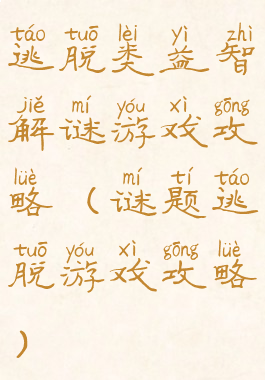 táo tuō lèi yì zhì
逃脱类益智
jiě mí yóu xì gōng
解谜游戏攻
lüè mí tí táo
略（谜题逃
tuō yóu xì gōng lüè
脱游戏攻略
）